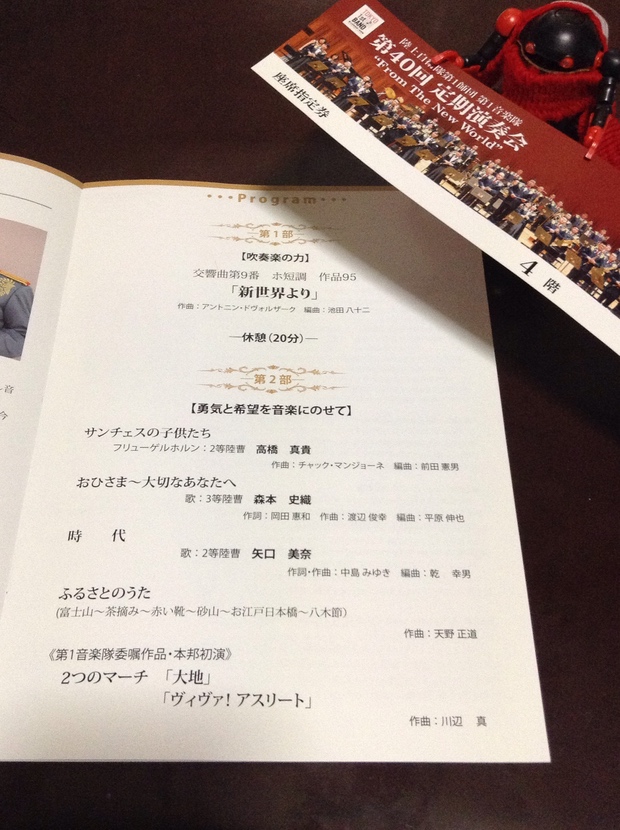 陸上自衛隊第1師団 第1音楽隊
第40回 定期演奏会
"From The New World"
座席指定券
4 階
Program
第1部
【吹奏楽の力】
交響曲第9番 ホ短調 作品95
「新世界より」
作曲：アントニン・ドヴォルザーク 編曲：池田 八十二
―休憩(20分)―
第2部
【勇気と希望を音楽にのせて】
サンチェスの子供たち
フリューゲルホルン：2等陸曹 高橋 真貴
作曲：チャック・マンジョーネ 編曲：前田 憲男
おひさま～大切なあなたへ
歌：3等陸曹 森本 史織
作詞：岡田 惠和 作曲：渡辺 俊幸 編曲：平原 伸也
時 代
歌：2等陸曹 矢口 美奈
作詞・作曲：中島 みゆき 編曲：乾 幸男
ふるさとのうた
(富士山～茶摘み～赤い靴～砂山～お江戸日本橋～八木節)
作曲：天野 正道
《第1音楽隊委嘱作品・本邦初演》
2つのマーチ 「大地」
「ヴィヴァ! アスリート」
作曲：川辺 真